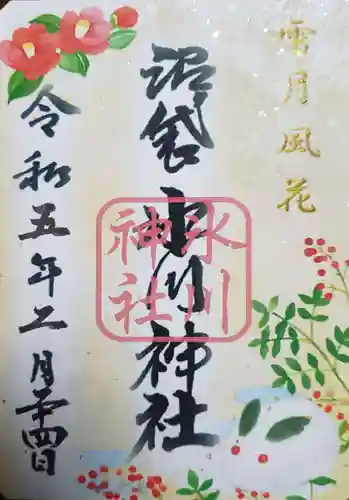 雪月風花
沼袋氷川神社
氷川
神社
令和五年二月廿四日